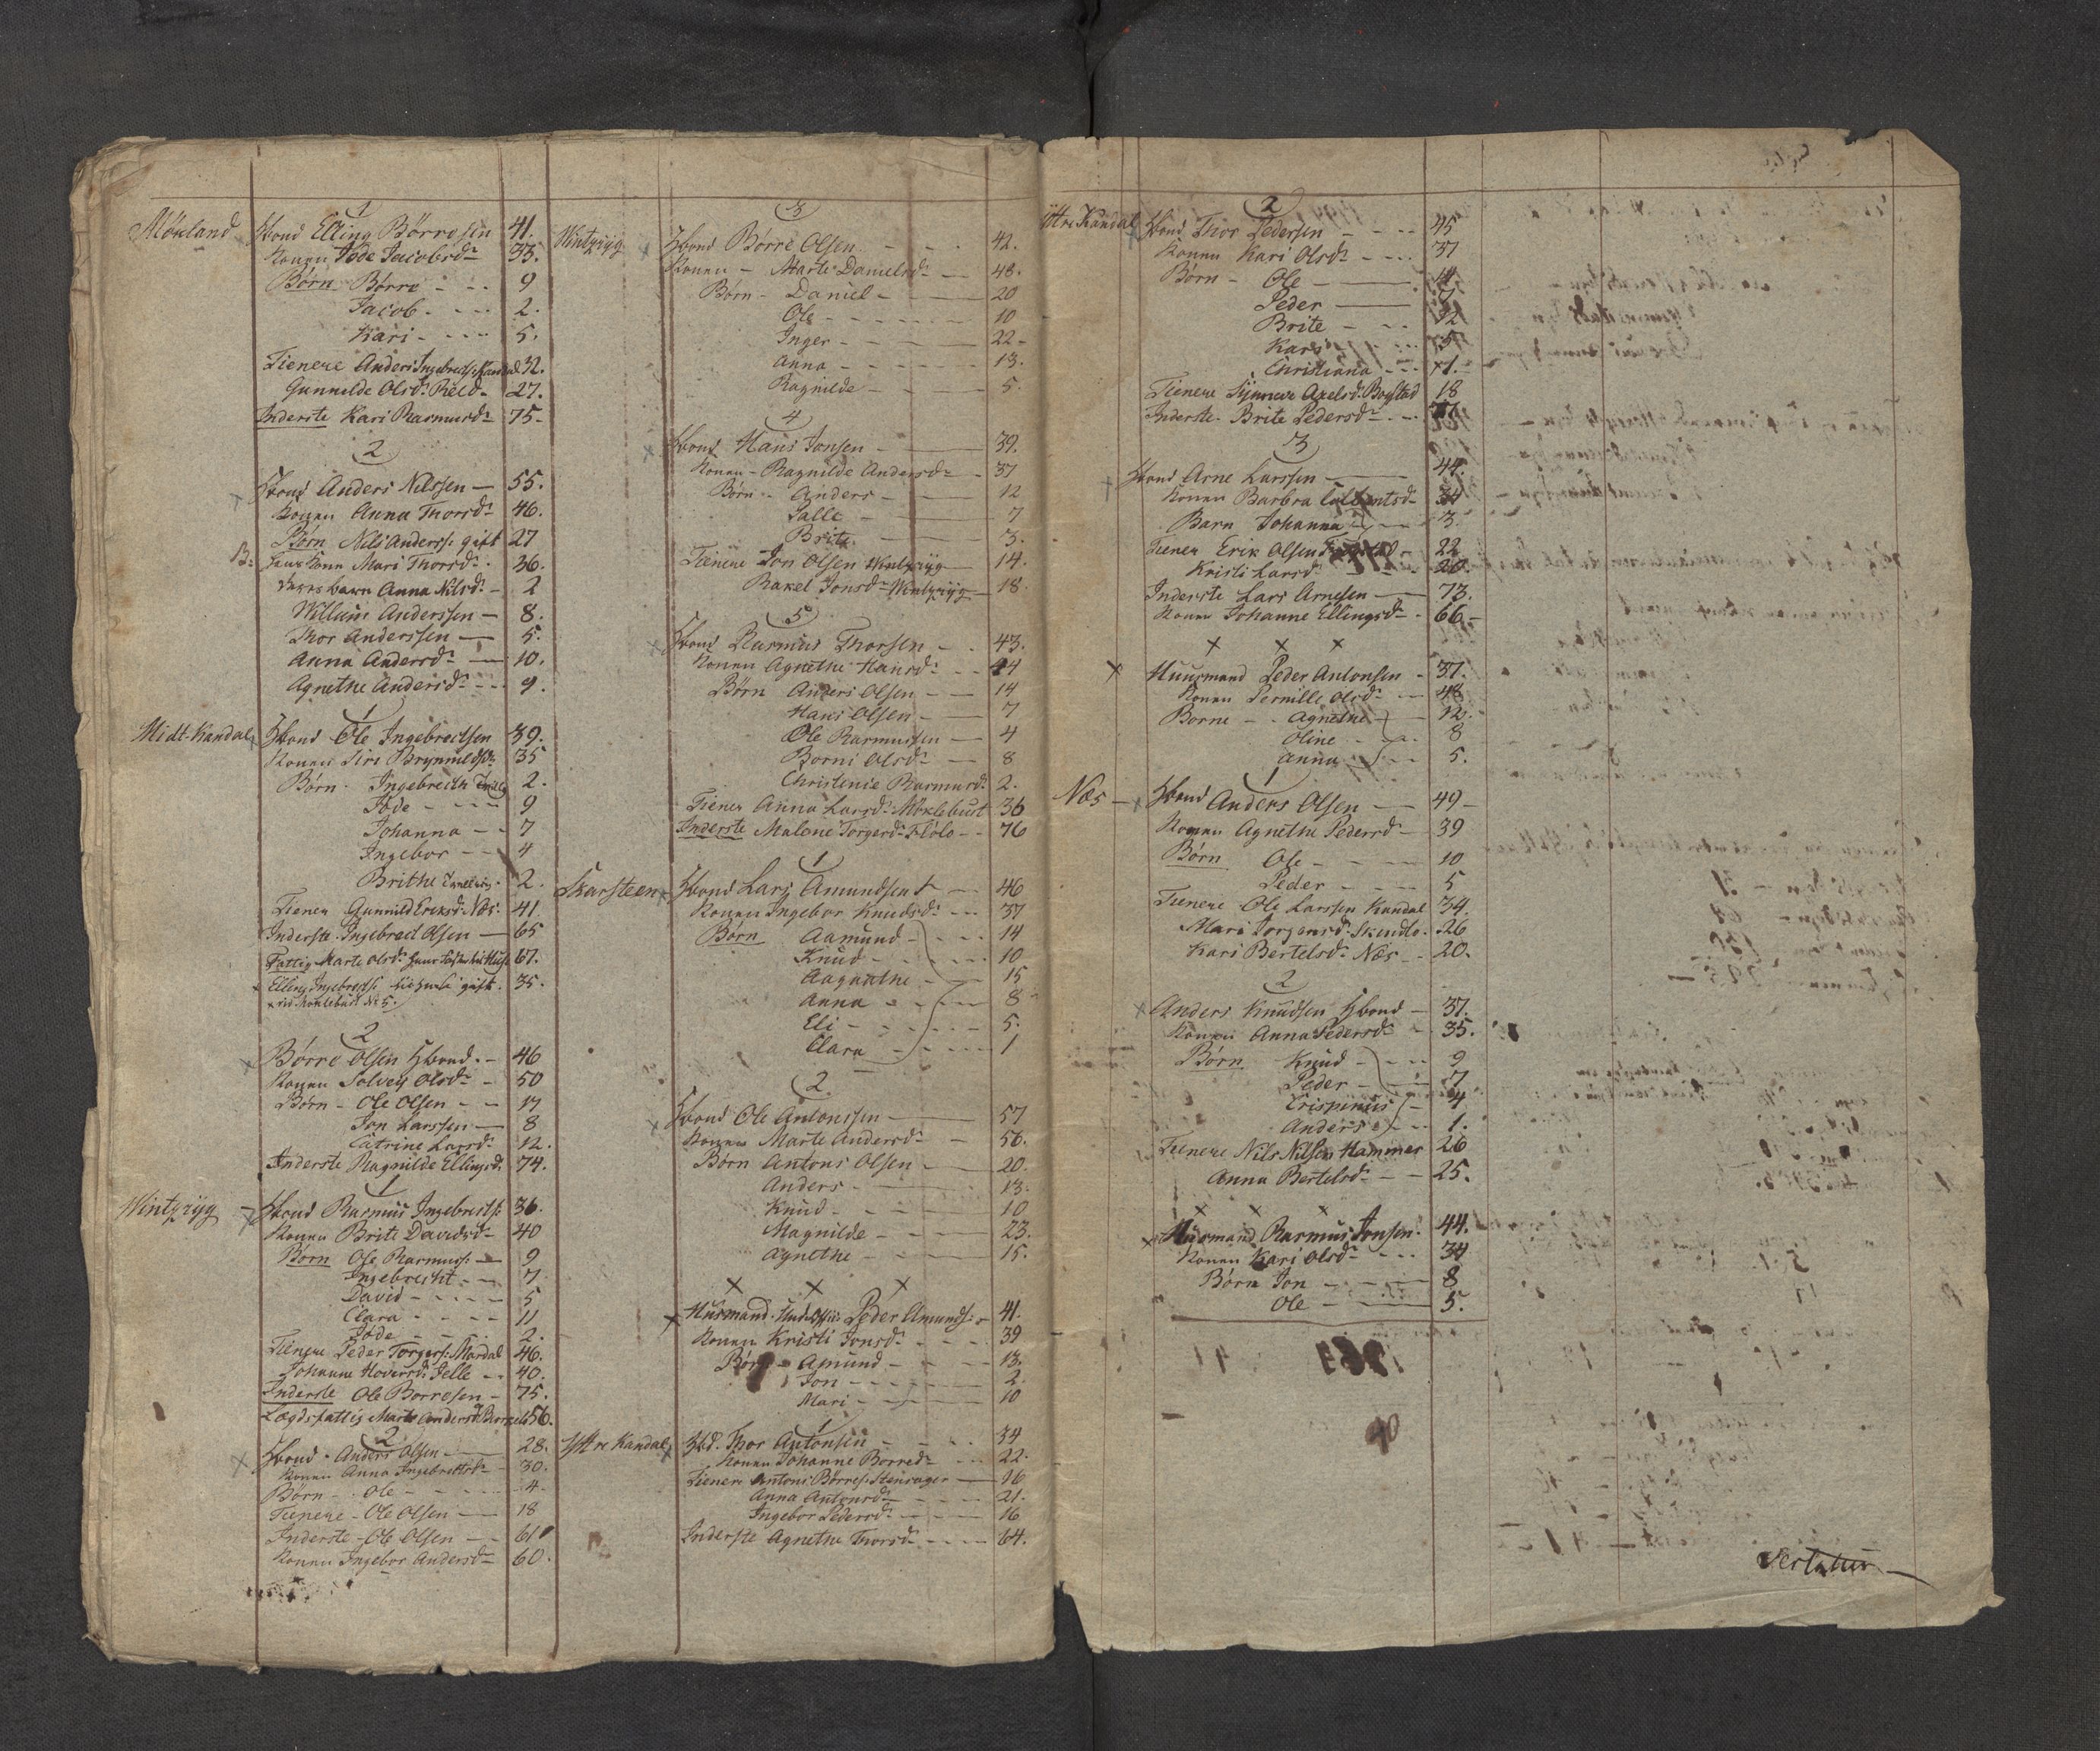 1
Möuland Hbond Elling Börresen 41.
Konen Jöde Jacobsdr 33.
Börn Börre 9
Jacob 2.
Kari 5.
Tienere Anders Ingebrects: Kandal 32.
Gunnilde Olsdr Reed 27.
Inderste Kari Rasmusdr 75
2
Hbond Anders Nilssen 55.
Konen Anna Thorsdr 46.
Börn Nils Anderss: gift 27
B: Hans Kone Mari Thorsdr 36.
deres barn Anna Nilsdr 2
Willum Anderssen 8.
Thor Anderssen 5.
Anna Andersdr 10.
Agnethe Andersdr 9.
1
Midt-Kandal Hbond Ole Ingebrectsen 39.
Konen Siri Brynnildsdr 35
Börn Ingebrecth 2.
Jöde 9
Johanna 7
Ingebor 4
Brithe 2.
Tiener Gunnild Eriksdr Næs 41
Inderste Ingebrect Olsen 65
Fattig Marte Olsdr 67.
Elling Ingebrects: gift. 35.
2
Börre Olsen Hbond. 46
Konen Solvey Olsdr 50
Börn Ole Olsen 17
Jon Larssen 8
Catrine Larsdr 12.
Inderste Ragnilde Ellingsdr 74.
1
Wintzryg Hbond Rasmus Ingebrects: 36.
Konen Brite Davidsdr 40
Born Ole Rasmuss: 9
Ingebrecht 7
David 5
Clara 11
Jöde 2.
Tienere Peder Torgers: Mardal 46.
Johanne Hoversdr Jelle 40.
Inderste Ole Borresen 75.
Lægdsfattig Marte Andersdr 56.
2
Hbond Anders Olsen 28.
Konen Anna Ingebrectsdr 30.
Börn Ole 4
Tienere Ole Olsen 18
Inderste Ole Olsen 61
Konen Ingebor Andersdr 60.
3
Wintzryg Hbond Börre Olsen 42.
Konen Marte Danielsdr 48.
Börn Daniel 20
Ole 10
Inger 22
Anna 13.
Ragnilde 5.
4
Hbond Hans Jonsen 39.
Konen Ragnilde Andersdr 37
Börn Anders 12
Palle 7
Brite 3.
Tienere Jon Olsen Wintzryg 14.
Rakel Jonsdr Wintzryg 18
5
Hbond Rasmus Thorsen 43.
Konen Agnethe Hansdr 44
Börn Anders Olsen 14
Hans Olsen 7
Ole Rasmussen 4
Borni Olsdr 8
Christenie Rasmusdr 2.
Tiener Anna Larsdr Möklebust 36
Inderste Malene Torgersdr Flölo 76
1
Skarsteen Hbond Lars Amundsen 46
Konen Ingebor Knudsdr 37
Börn Aamund 14
Knud 10
Aagnathe 15
Anna 8
Eli 5.
Clara 1
2
Hbond Ole Antonssen 57
Konen Marte Andersdr 56.
Börn Antons Olsen 20.
Anders 13.
Knud 10
Magnilde 23.
Agnethe 15.
× × ×
Husmand Peder Amunds: 41.
Konen Kristi Jonsdr 39
Börn Amund 13.
Jon 2.
Mari 10
1
Yttre Kandal Hbd. Thor Antonsen 34
Konen Johanne Borresdr 22.
Tienere Antons Börres: Stensager 16
Anna Antonsdr 21.
Ingebor Pedersdr 16
Inderste Agnethe Thorsdr 64.
2
Yttre Kandal Hbond Thor Pedersen 45
Konen Kari Olsdr 37
Börn Ole 14
Peder 7
Brite 12
Kari 5
Christiana 1.
Tienere Synneve Axelsdr Bogstad 18
Inderste Brite Pedersdr
3
Hbond Arne Larssen 44.
Konen Barbra 34
Barn Johanna 3.
Tiener Erik Olsen 22
Kristi Larsdr 20.
Inderste Lars Arnesen 73.
Konen Johanne Ellingsdr 66
× × ×
Huusmand Peder Antonsen 37.
Konen Pernille Olsdr 48
Borne Agnethe 12.
Oline 8
Anna 5.
1
Næs Hbond Anders Olsen 49
Konen Agnethe Pedersdr 39
Börn Ole 10
Peder 5
Tienere Ole Larssen Kandal 34.
Mari Jorgensdr 26
Kari Bertelsdr Næs 20.
2
Anders Knudsen Hbond 37.
Konen Anna Pedersdr 35.
Börn Knud 9
Peder 7
Crispinus 4
Anders 1.
Tienere Nils Nilsen Hammer 26
Anna Bertelsdr 25.
× × ×
Husmand Rasmus Jonsen 44.
Konen Kari Olsdr 34
Börn Jon 8
Ole 5.
40
Vertatur